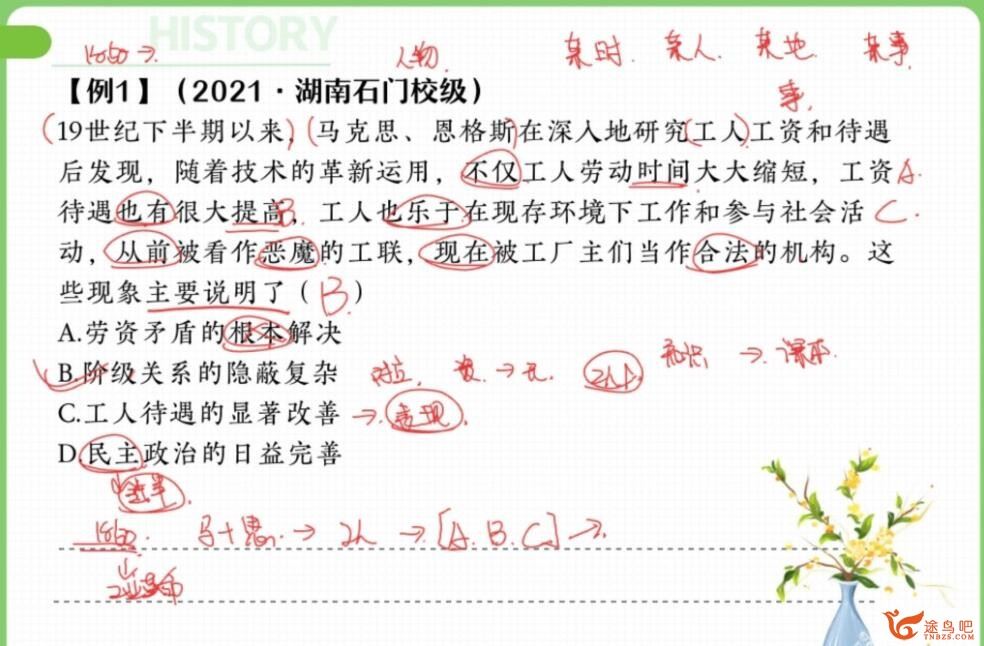 HISTORY
1850→ 人物 某时 某人 某地 某事
【例1】（2021·湖南石门校级） 事
(19世纪下半期以来,(马克思、恩格斯)在深入地研究(工人)工资和待遇
后发现，随着技术的革新运用，不仅工人劳动时间大大缩短，工资 A.
待遇也有很大提高 B，工人也乐于在现存环境下工作和参与社会活 C.
动，从前被看作恶魔的工联，现在被工厂主们当作合法的机构。这
些现象主要说明了（B）
A.劳资矛盾的根本解决
B.阶级关系的隐蔽复杂 对立 资→无 工人 知识→课本.
C.工人待遇的显著改善 →表现.
D.民主政治的日益完善
1850. 马+恩.→工人→[A.B.C]→.
↓
工业革命
途鸟吧
TNBZS.COM